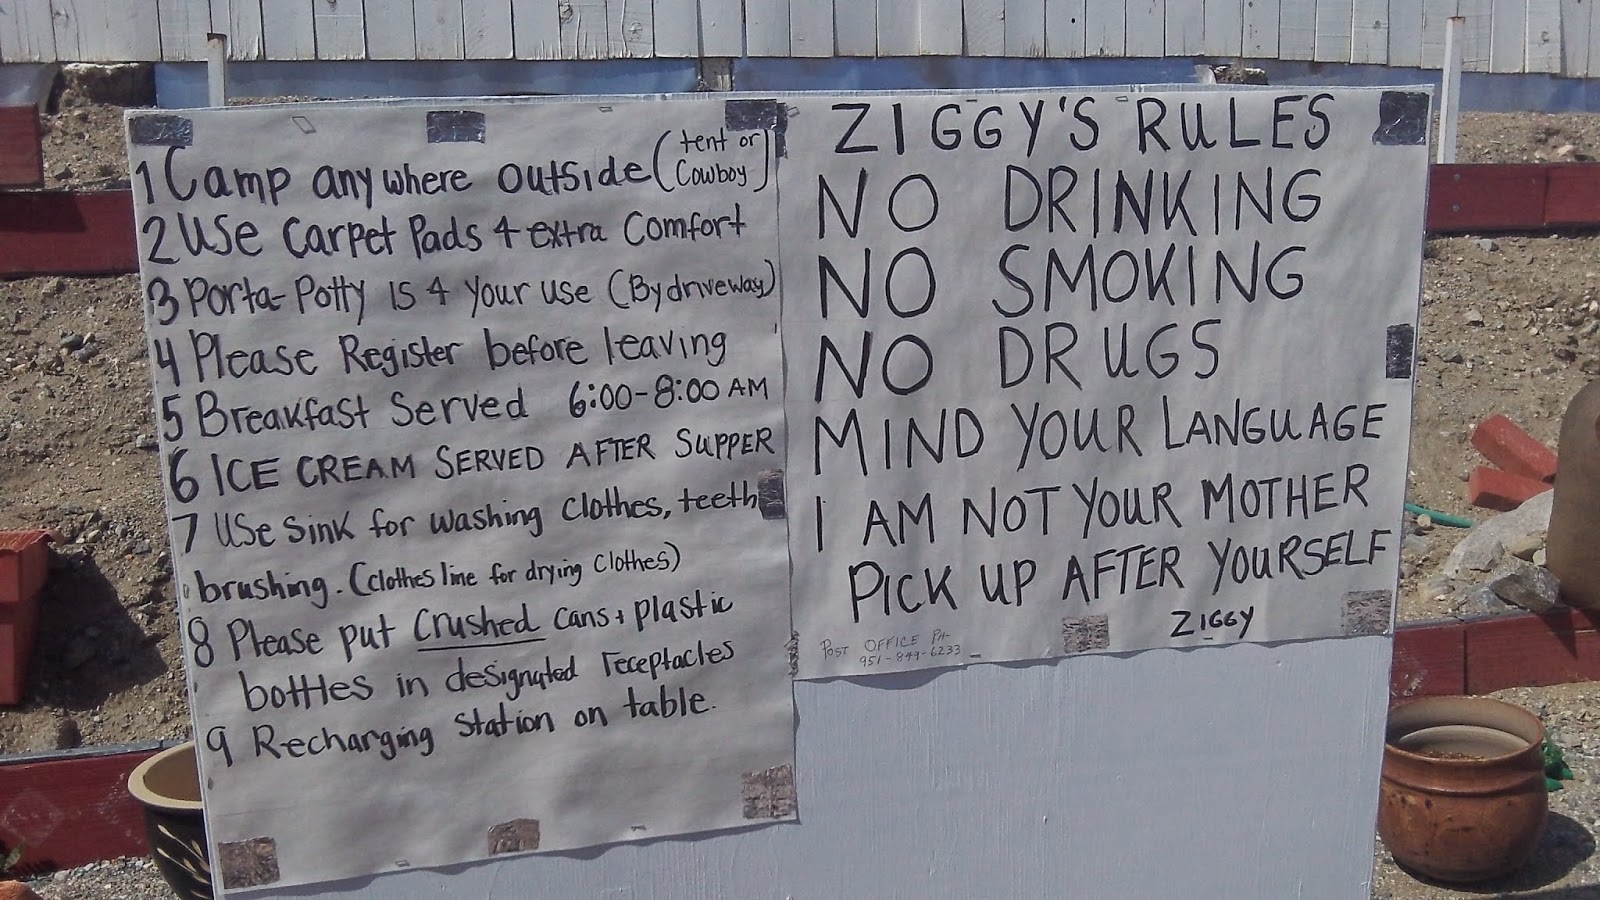 1 Camp anywhere outside (tent or Cowboy)
2 Use Carpet Pads 4 extra Comfort
3 Porta-Potty is 4 your use (By driveway)
4 Please Register before leaving
5 Breakfast Served 6:00-8:00 AM
6 ICE CREAM SERVED AFTER SUPPER
7 Use sink for washing clothes, teeth
brushing. (clothes line for drying clothes)
8 Please put Crushed cans + plastic
bottles in designated receptacles
9 Recharging station on table.
ZIGGY'S RULES
NO DRINKING
NO SMOKING
NO DRUGS
MIND YOUR LANGUAGE
I AM NOT YOUR MOTHER
PICK UP AFTER YOURSELF
ZIGGY
POST OFFICE PH-
951-849-6233